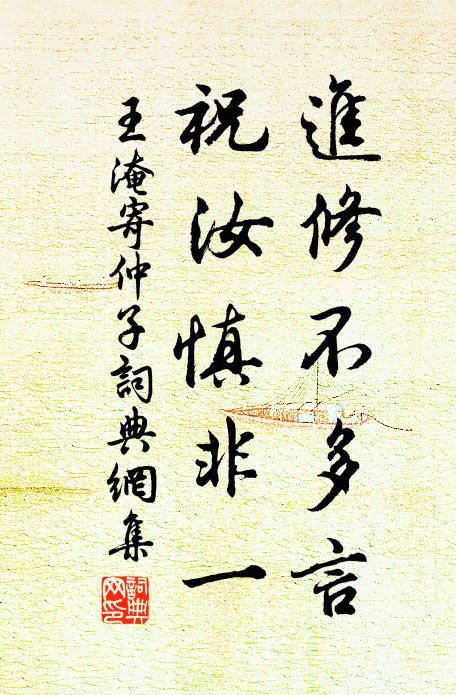 進修不多言
祝汝慎非一
王淹寄仲子詞典網集
詞典網印